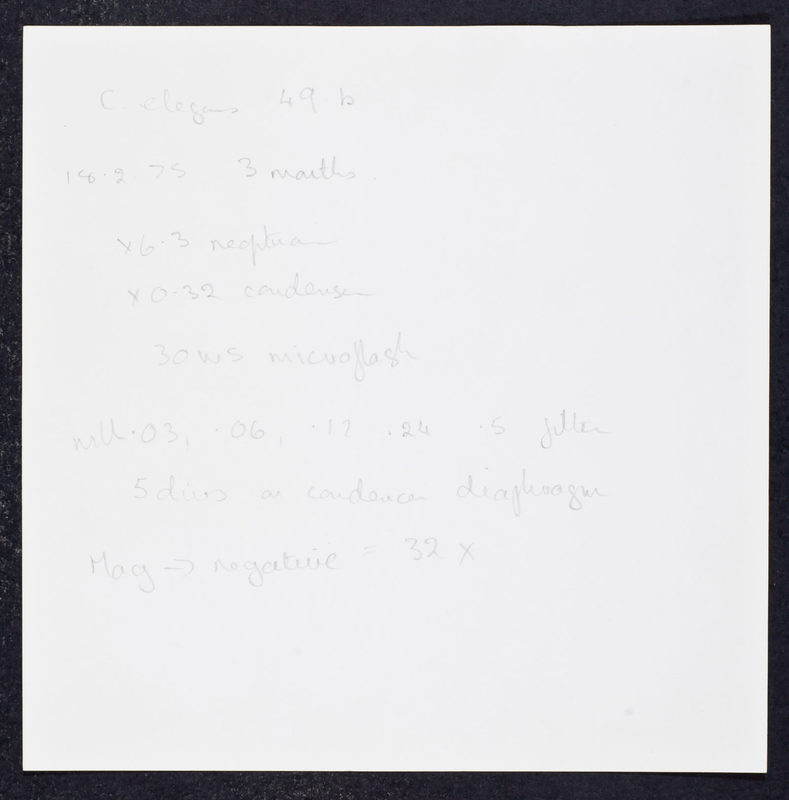 C. elegans 49.b
18.2.75 3 months.
x6.3 neofluar
x0.32 condenser
30ws microflash
with .03, .06, .12 .24 .5 filter
5 divs on condenser diaphragm
Mag → negative = 32 x